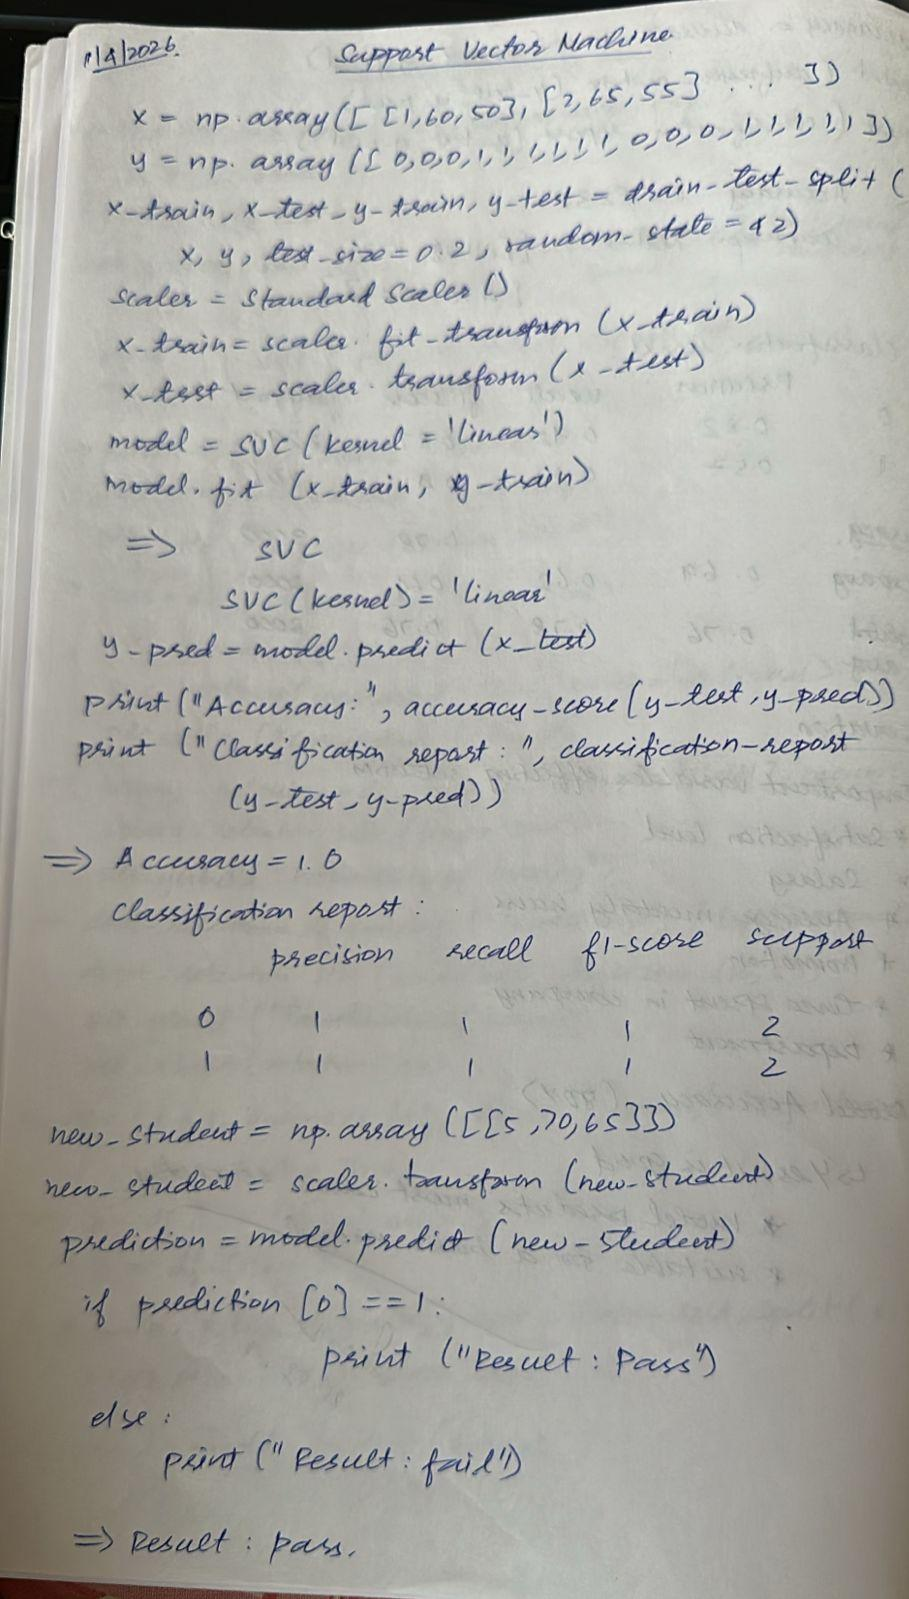 1/4/2026
Support Vector Machine
x = np.array([[1,60,50], [2,65,55] ... ])
y = np.array([0,0,0,1,1,1,1,1,1,0,0,0,1,1,1,1,1])
x-train, x-test, y-train, y-test = train-test-split (
x, y, test-size = 0.2, random-state = 42)
scaler = Standard Scaler ()
x-train = scaler. fit-transform (x-train)
x-test = scaler. transform (x-test)
model = SVC (kernel = 'linear')
model. fit (x-train, y-train)
=> SVC
SVC (kernel) = 'linear'
y-pred = model. predict (x_test)
print ("Accuracy:", accuracy-score (y-test, y-pred))
print ("Classification report:", classification-report
(y-test, y-pred))
=> Accuracy = 1.0
Classification report:
precision recall f1-score support
0 1 1 1 2
1 1 1 1 2
new-student = np. array ([[5,70,65]])
new-student = scaler. transform (new-student)
prediction = model. predict (new-student)
if prediction [0] == 1:
print ("Result: Pass")
else:
print ("Result: fail")
=> Result: pass.